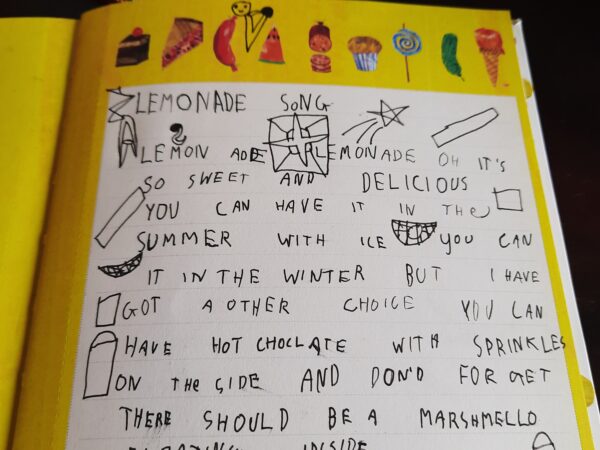 LEMONADE SONG
A LEMON ADE LEMONADE OH IT'S
SO SWEET AND DELICIOUS
YOU CAN HAVE IT IN THe
SUMMER WITH ICE YOU CAN
IT IN THE WINTER BUT I HAVE
GOT A OTHER CHOICE YOU CAN
HAVE HOT CHOCLATE WITH SPRINKLES
ON THe SIDE AND DON'D FOR GET
THERE SHOULD BE A MARSHMELLO
INSIDE